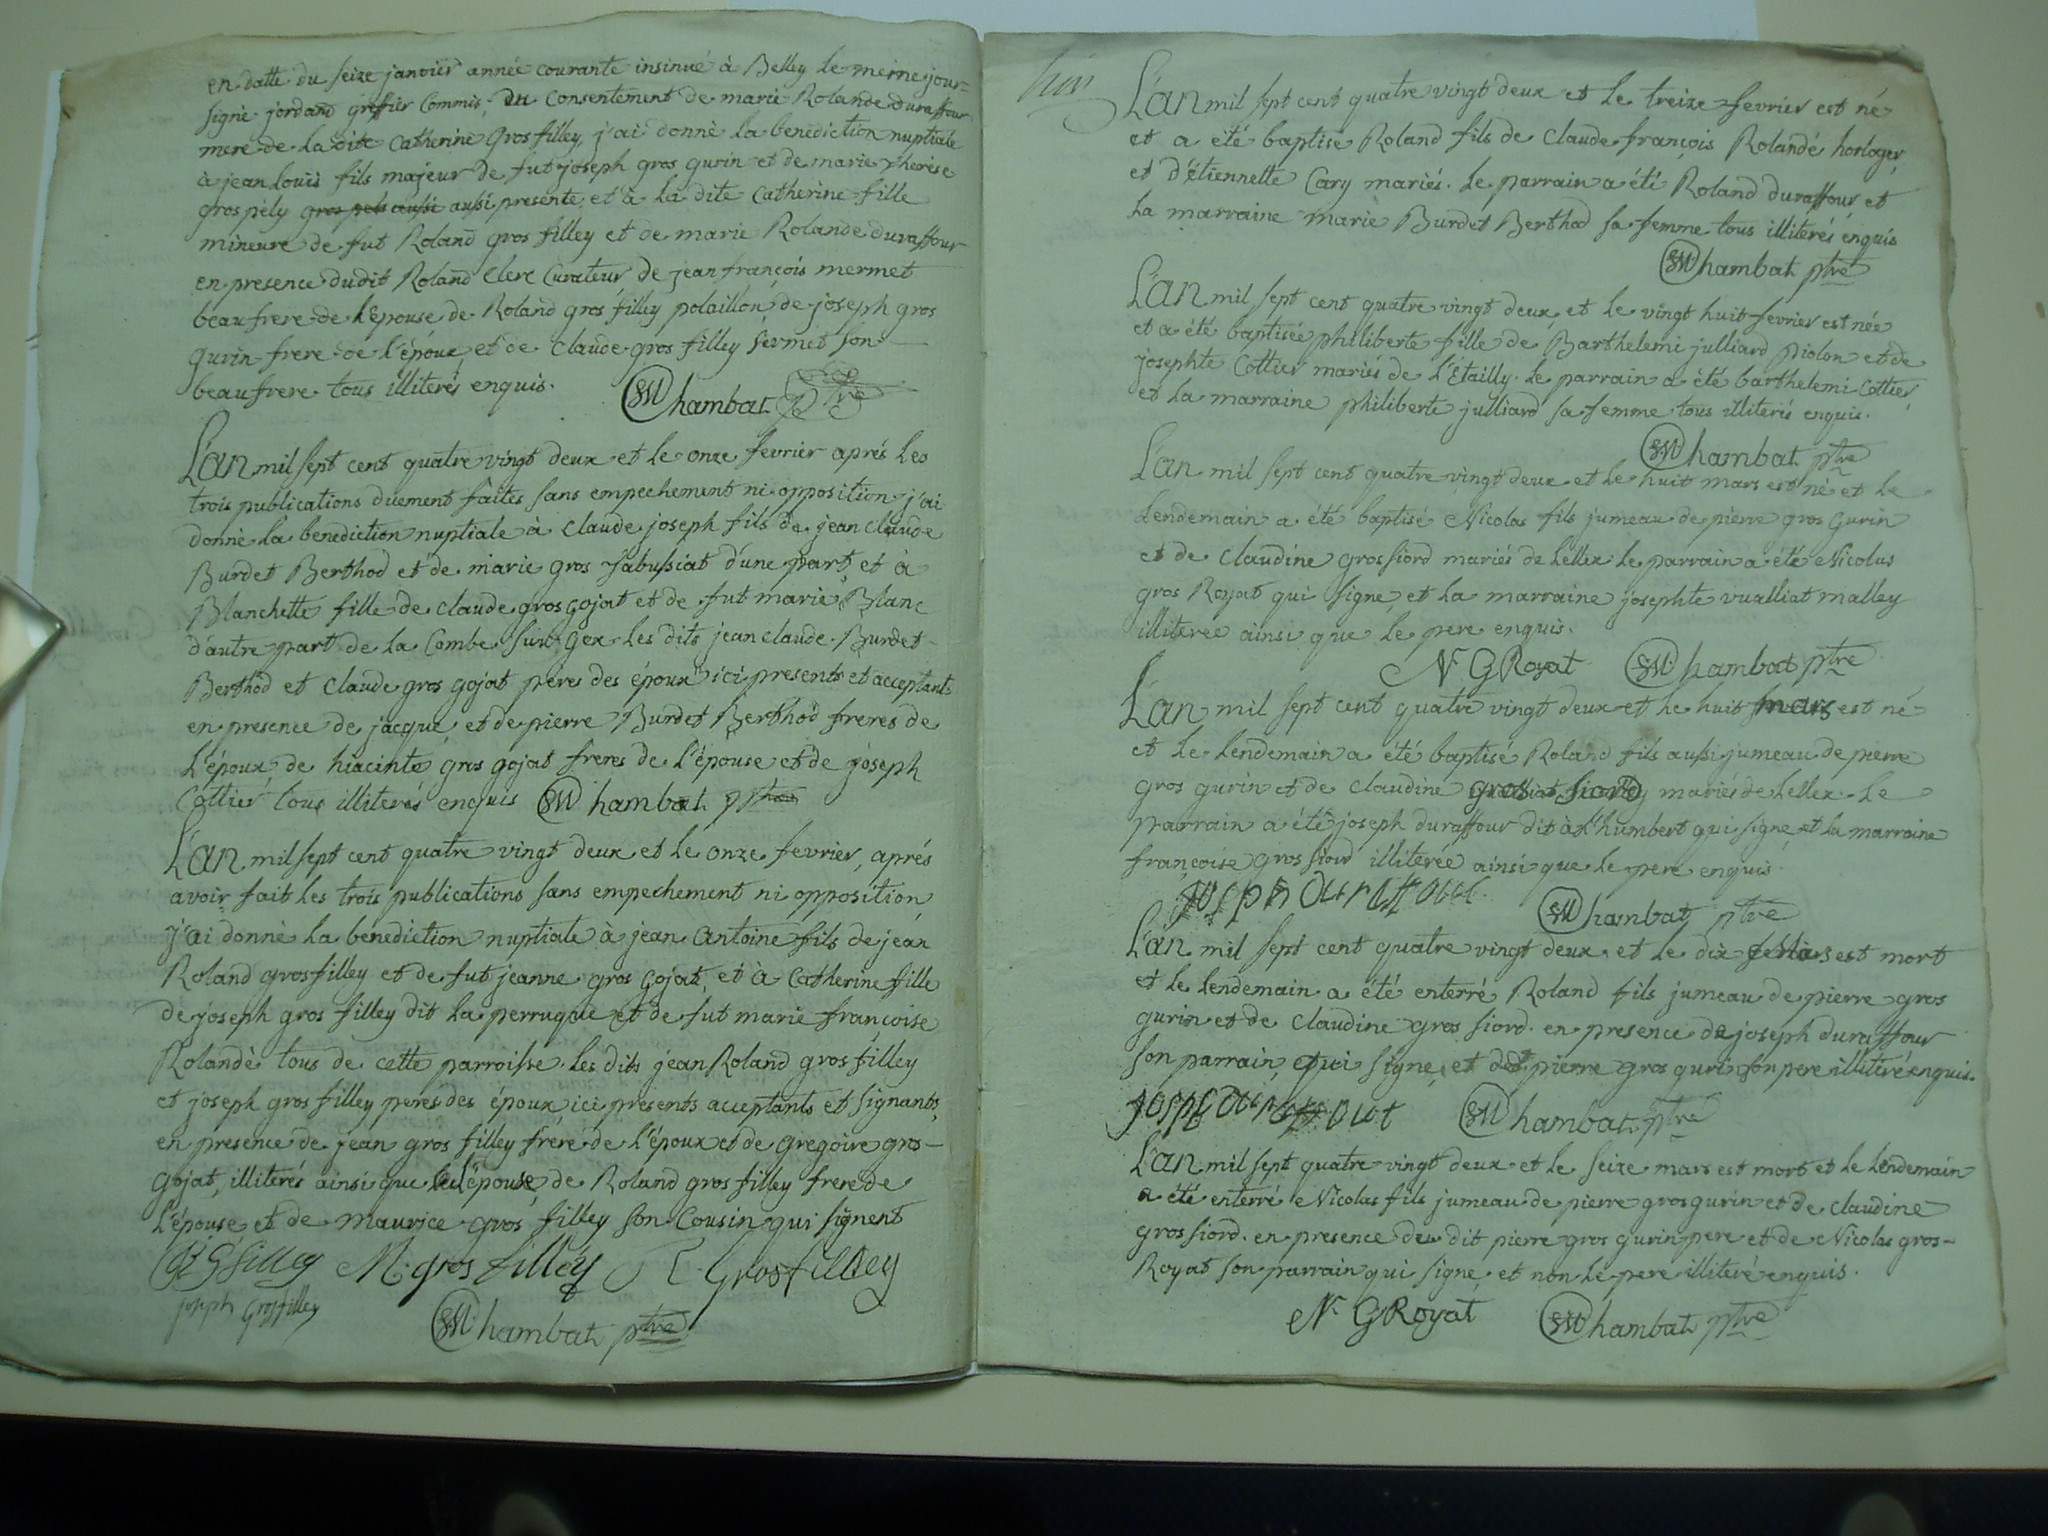 en datte du seize janvier année courante insinué à Belley le meme jour
signé jordand greffier Commis, du Consentement de marie Rolande duraffour
mere de la dite Catherine Gros filley, j'ai donnè la benediction nuptiale
à jean louis fils majeur de fut joseph gros gurin et de marie therèse
gros pély gros pely aussi aussi presente, et à la dite Catherine fille
mineure de fut Roland gros filley et de marie Rolande duraffour
en presence dudit Roland Clerc Curateur de jean françois mermet
beaufrere de l'épouse de Roland gros filley polaillon, de joseph gros
gurin frere de l'époux, et de Claude gros filley sermet son
beaufrere tous illiterés enquis. Chambat ptre
L'an mil sept cent quatre vingt deux et le onze fevrier aprés les
trois publications duement faites sans empechement ni opposition j'ai
donnè la benediction nuptiale à Claude joseph fils de jean Claude
Burdet Berthod et de marie gros Jabussiat d'une part, et à
Blanchette fille de Claude gros gojat et de fut marie Blanc
d'autre part de la Combe sur Gex les dits jean claude Burdet
Berthod et Claude gros gojat peres des époux ici presents et acceptants
en presence de jacque, et de pierre Burdet Berthod freres de
l'époux, de hiacinte gros gojat freres de l'épouse et de joseph
Cottier tous illiterés enquis Chambat ptre
L'an mil sept cent quatre vingt deux et le onze fevrier, aprés
avoir fait les trois publications sans empechement ni opposition,
j'ai donnè la bénediction nuptiale à jean Antoine fils de jean
Roland gros filley et de fut jeanne gros gojat, et à Catherine fille
de joseph gros filley dit la perruque et de fut marie françoise
Rolandè tous de cette parroisse. les dits jean Roland gros filley
et joseph gros filley peres des époux, ici presents acceptants et signants,
en presence de jean gros filley frere de l'époux et de gregoire gros
gojat, illiterés ainsi que l'épouse, de Roland gros filley frere de
l'épouse et de maurice gros filley son Cousin qui signent
M. gros filley R. Grosfilley
joseph Grosfilley
Chambat ptre
L'an mil sept cent quatre vingt deux et le treize fevrier est né
et a été baptisé Roland fils de Claude françois Rolandé horloger,
et d'étiennette Cary mariés. le parrain a été Roland duraffour, et
la marraine marie Burdet Berthod sa femme tous illiterés enquis
Chambat ptre
L'an mil sept cent quatre vingt deux, et le vingt huit fevrier est née
et a été baptisée philiberte fille de Barthelemi julliard piolon et de
josephte Cottier mariés de l'Etailly. le parrain a été barthelemi Cottier,
et la marraine philiberte julliard sa femme tous illiterés enquis.
Chambat ptre
L'an mil sept cent quatre vingt deux et le huit mars est né et le
lendemain a été baptisé Nicolas fils jumeau de pierre gros gurin
et de Claudine gros fiord mariés de lellex le parrain a été Nicolas
gros Royat qui signe, et la marraine josephte vualliat malley
illiterée ainsi que le pere enquis.
N. G Royat Chambat ptre
L'an mil sept cent quatre vingt deux et le huit mars est né
et le lendemain a été baptisé Roland fils aussi jumeau de pierre
gros gurin et de Claudine gros fiord mariés de lellex. le
parrain a été joseph duraffour dit à l'humbert qui signe, et la marraine
françoise gros fiord illiterée ainsi que le pere enquis.
Chambat ptre
L'an mil sept cent quatre vingt deux, et le dix mars est mort
et le lendemain a été enterré Roland fils jumeau de pierre gros
gurin et de Claudine gros fiord. en presence de joseph duraffour
son parrain, qui signe, et de pierre gros gurin son pere illiteré enquis.
Chambat ptre
L'an mil sept quatre vingt deux et le seize mars est mort et le lendemain
a été enterré Nicolas fils jumeau de pierre gros gurin et de Claudine
gros fiord. en presence du dit pierre gros gurin pere et de Nicolas gros-
Royat son parrain qui signe, et non le pere illiteré enquis.
N. G Royat Chambat ptre